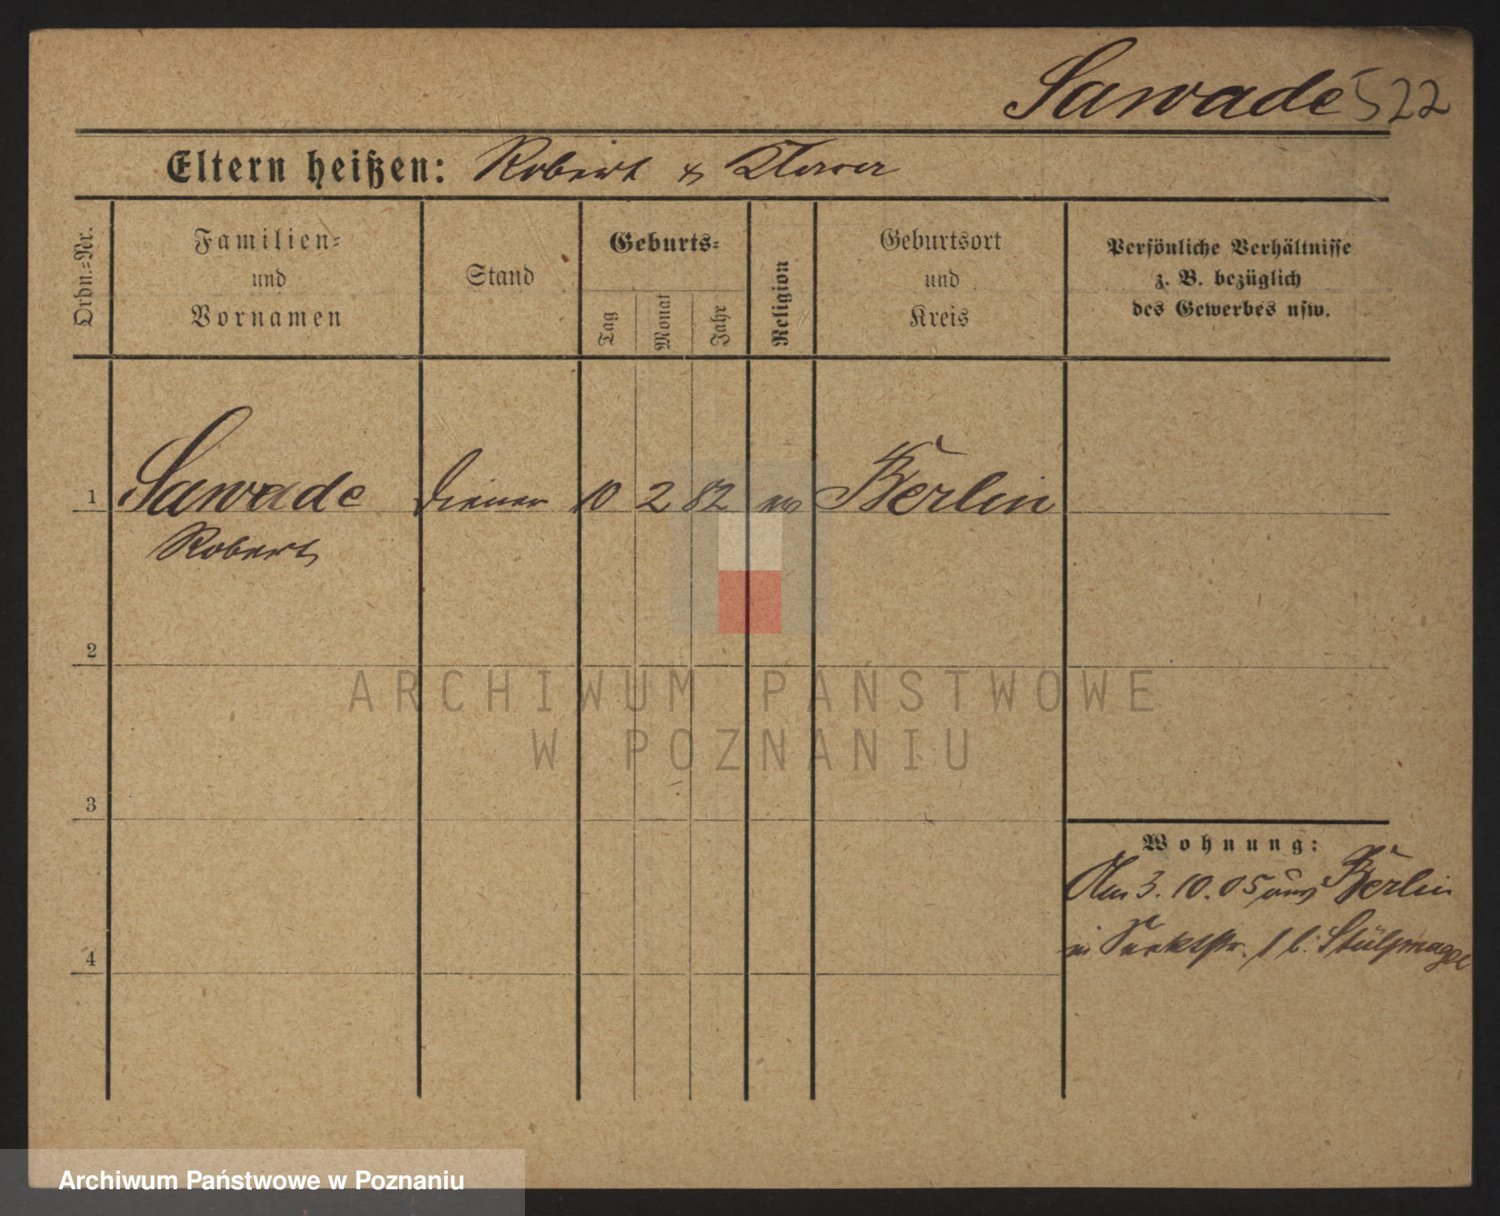 Sawade 522
Eltern heißen: Robert & Klara
Ordn.-Nr.
Familien-
und
Vornamen
Stand
Geburts-
Tag
Monat
Jahr
Religion
Geburtsort
und
Kreis
Persönliche Verhältnisse
z. B. bezüglich
des Gewerbes usw.
1 Sawade Diener 10 2 82 ev Berlin
Robert
2
ARCHIWUM PAŃSTWOWE
W POZNANIU
3
Wohnung:
Am 3.10.05 aus Berlin
4
Archiwum Państwowe w Poznaniu